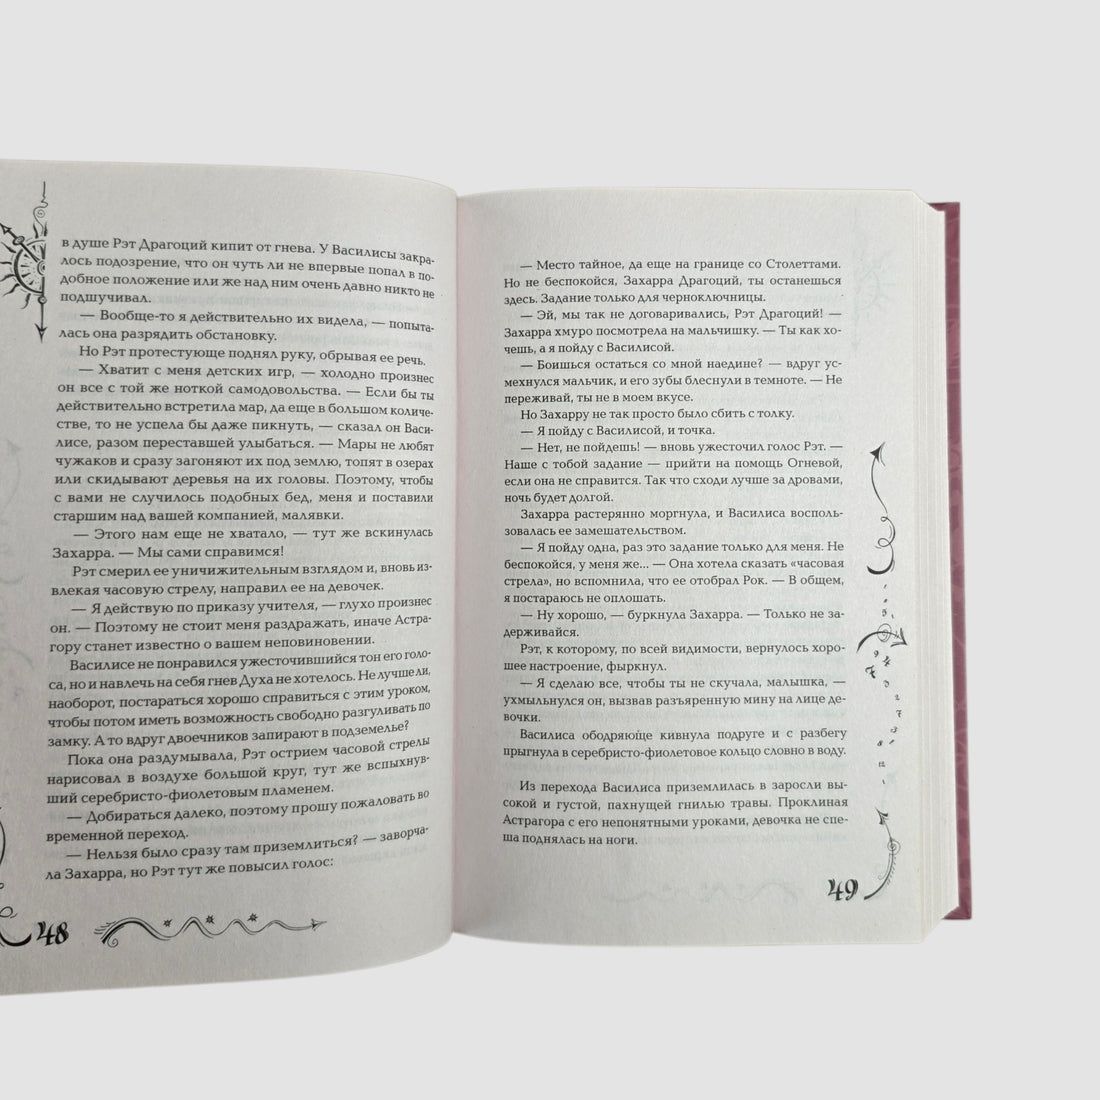 в душе Рэт Драгоций кипит от гнева. У Василисы закра-
лось подозрение, что он чуть ли не впервые попал в по-
добное положение или же над ним очень давно никто не
подшучивал.
— Вообще-то я действительно их видела, — попыта-
лась она разрядить обстановку.
Но Рэт протестующе поднял руку, обрывая ее речь.
— Хватит с меня детских игр, — холодно произнес
он все с той же ноткой самодовольства. — Если бы ты
действительно встретила мар, да еще в большом количе-
стве, то не успела бы даже пикнуть, — сказал он Васи-
лисе, разом переставшей улыбаться. — Мары не любят
чужаков и сразу загоняют их под землю, топят в озерах
или скидывают деревья на их головы. Поэтому, чтобы
с вами не случилось подобных бед, меня и поставили
старшим над вашей компанией, малявки.
— Этого нам еще не хватало, — тут же вскинулась
Захарра. — Мы сами справимся!
Рэт смерил ее уничижительным взглядом и, вновь из-
влекая часовую стрелу, направил ее на девочек.
— Я действую по приказу учителя, — глухо произнес
он. — Поэтому не стоит меня раздражать, иначе Астра-
гору станет известно о вашем неповиновении.
Василисе не понравился ужесточившийся тон его голо-
са, но и навлечь на себя гнев Духа не хотелось. Не лучше ли,
наоборот, постараться хорошо справиться с этим уроком,
чтобы потом иметь возможность свободно разгуливать по
замку. А то вдруг двоечников запирают в подземелье?
Пока она раздумывала, Рэт острием часовой стрелы
нарисовал в воздухе большой круг, тут же вспыхнув-
ший серебристо-фиолетовым пламенем.
— Добираться далеко, поэтому прошу пожаловать во
временной переход.
— Нельзя было сразу там приземлиться? — заворча-
ла Захарра, но Рэт тут же повысил голос:
48
— Место тайное, да еще на границе со Столеттами.
Но не беспокойся, Захарра Драгоций, ты останешься
здесь. Задание только для черноключницы.
— Эй, мы так не договаривались, Рэт Драгоций! —
Захарра хмуро посмотрела на мальчишку. — Ты как хо-
чешь, а я пойду с Василисой.
— Боишься остаться со мной наедине? — вдруг ус-
мехнулся мальчик, и его зубы блеснули в темноте. — Не
переживай, ты не в моем вкусе.
Но Захарру не так просто было сбить с толку.
— Я пойду с Василисой, и точка.
— Нет, не пойдешь! — вновь ужесточил голос Рэт. —
Наше с тобой задание — прийти на помощь Огневой,
если она не справится. Так что сходи лучше за дровами,
ночь будет долгой.
Захарра растерянно моргнула, и Василиса восполь-
зовалась ее замешательством.
— Я пойду одна, раз это задание только для меня. Не
беспокойся, у меня же... — Она хотела сказать «часовая
стрела», но вспомнила, что ее отобрал Рок. — В общем,
я постараюсь не оплошать.
— Ну хорошо, — буркнула Захарра. — Только не за-
держивайся.
Рэт, к которому, по всей видимости, вернулось хоро-
шее настроение, фыркнул.
— Я сделаю все, чтобы ты не скучала, малышка, —
ухмыльнулся он, вызвав разъяренную мину на лице де-
вочки.
Василиса ободряюще кивнула подруге и с разбегу
прыгнула в серебристо-фиолетовое кольцо словно в воду.
Из перехода Василиса приземлилась в заросли вы-
сокой и густой, пахнущей гнилью травы. Проклиная
Астрагора с его непонятными уроками, девочка не спе-
ша поднялась на ноги.
49